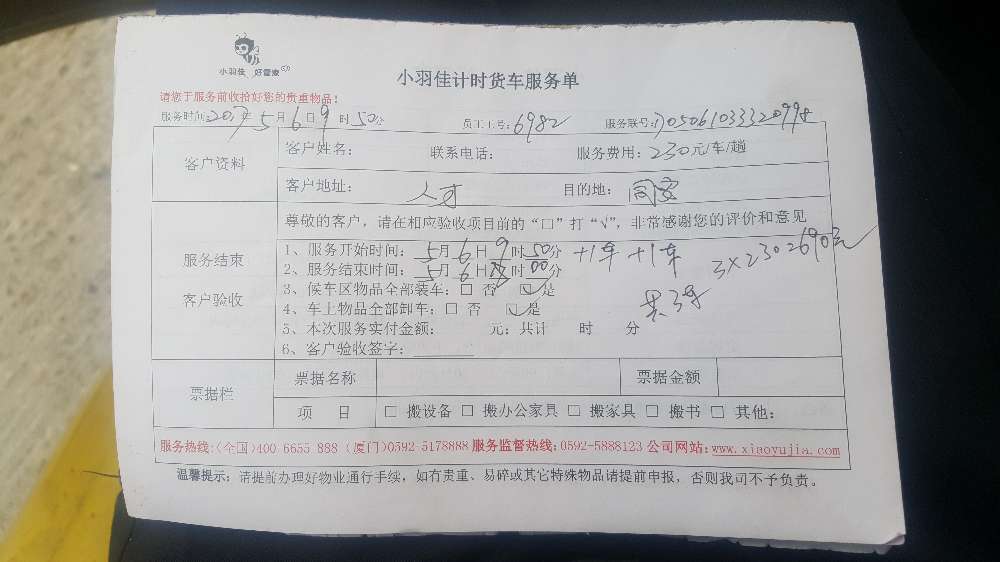 小羽佳 好管家
小羽佳计时货车服务单
请您于服务前收拾好您的贵重物品!
服务时间:2017年5月6日9时50分 员工工号:6982 服务联号:
客户资料
客户姓名: 联系电话: 服务费用:230元/车/趟
客户地址: 人才 目的地: 同安
服务结束
客户验收
尊敬的客户,请在相应验收项目前的“□”打“√”,非常感谢您的评价和意见
1、服务开始时间:5月6日9时50分 +1车 +1车 3×230=690元
2、服务结束时间:5月6日 时00分
3、候车区物品全部装车:□ 否 ☑ 是 共3车
4、车上物品全部卸车:□ 否 ☑ 是
5、本次服务实付金额: 元;共计 时 分
6、客户验收签字:
票据栏
票据名称 票据金额
项 目 □ 搬设备 □ 搬办公家具 □ 搬家具 □ 搬书 □ 其他:
服务热线:(全国)400 6655 888 (厦门)0592-5178888 服务监督热线:0592-5888123 公司网站:www.xiaoyujia.com
温馨提示:请提前办理好物业通行手续,如有贵重、易碎或其它特殊物品请提前申报,否则我司不予负责。